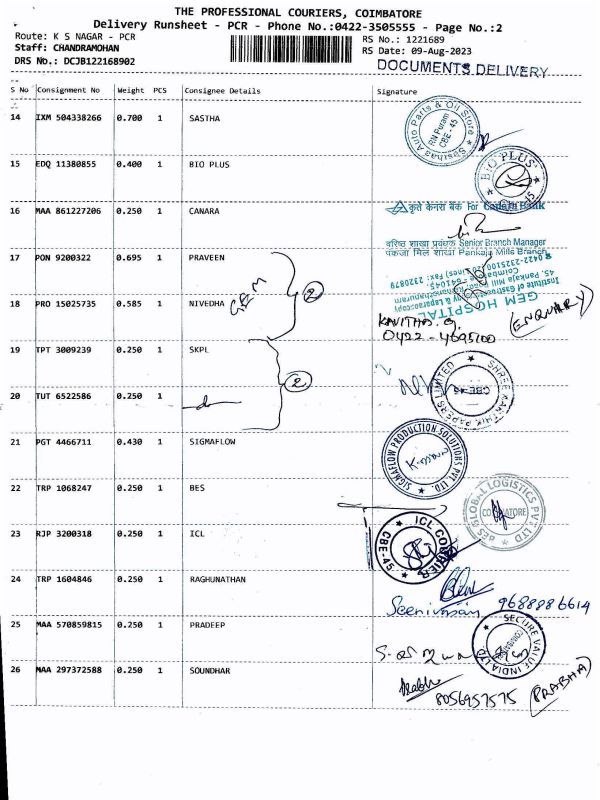 THE PROFESSIONAL COURIERS, COIMBATORE
Delivery Runsheet - PCR - Phone No.:0422-3505555 - Page No.:2
Route: K S NAGAR - PCR
RS No.: 1221689
Staff: CHANDRAMOHAN
RS Date: 09-Aug-2023
DRS No.: DCJB122168902
DOCUMENTS DELIVERY
S No Consignment No Weight PCS Consignee Details Signature
14 IXM 504338266 0.700 1 SASTHA
Sasthaa Auto Parts & Oil Store
RN Puram
CBE - 45
15 EDQ 11380855 0.400 1 BIO PLUS
BIO PLUS
16 MAA 861227206 0.250 1 CANARA
कृते केनरा बैंक For Canara Bank
वरिष्ठ शाखा प्रबंधक Senior Branch Manager
पंकजा मिल शाखा Pankaja Mills Branch
17 PON 9200322 0.695 1 PRAVEEN
GEM HOSPITAL
Institute of Gastroenterology & Laparoscopy
45, Pankaja Mill Road, Ramanathapuram
Coimbatore - 641045.
0422-2325100 Fax: 2320879
18 PRO 15025735 0.585 1 NIVEDHA
GEM
2
KAVITHA. G.
0422 - 4695100
(ENQUIARY)
19 TPT 3009239 0.250 1 SKPL
SHREE KARTHIK PAPERS LIMITED
CBE-45
2
20 TUT 6522586 0.250 1
21 PGT 4466711 0.430 1 SIGMAFLOW
SIGMAFLOW PRODUCTION SOLUTIONS PVT LTD
22 TRP 1068247 0.250 1 BES
BES GLOBAL LOGISTICS PVT LTD
COIMBATORE
23 RJP 3200318 0.250 1 ICL
ICL COURIER
CBE-45
24 TRP 1604846 0.250 1 RAGHUNATHAN
Seenivasan 9688886614
25 MAA 570859815 0.250 1 PRADEEP
SECURE VALUE INDIA LTD
26 MAA 297372588 0.250 1 SOUNDHAR
Prabha
8056957575 (PRABHA)